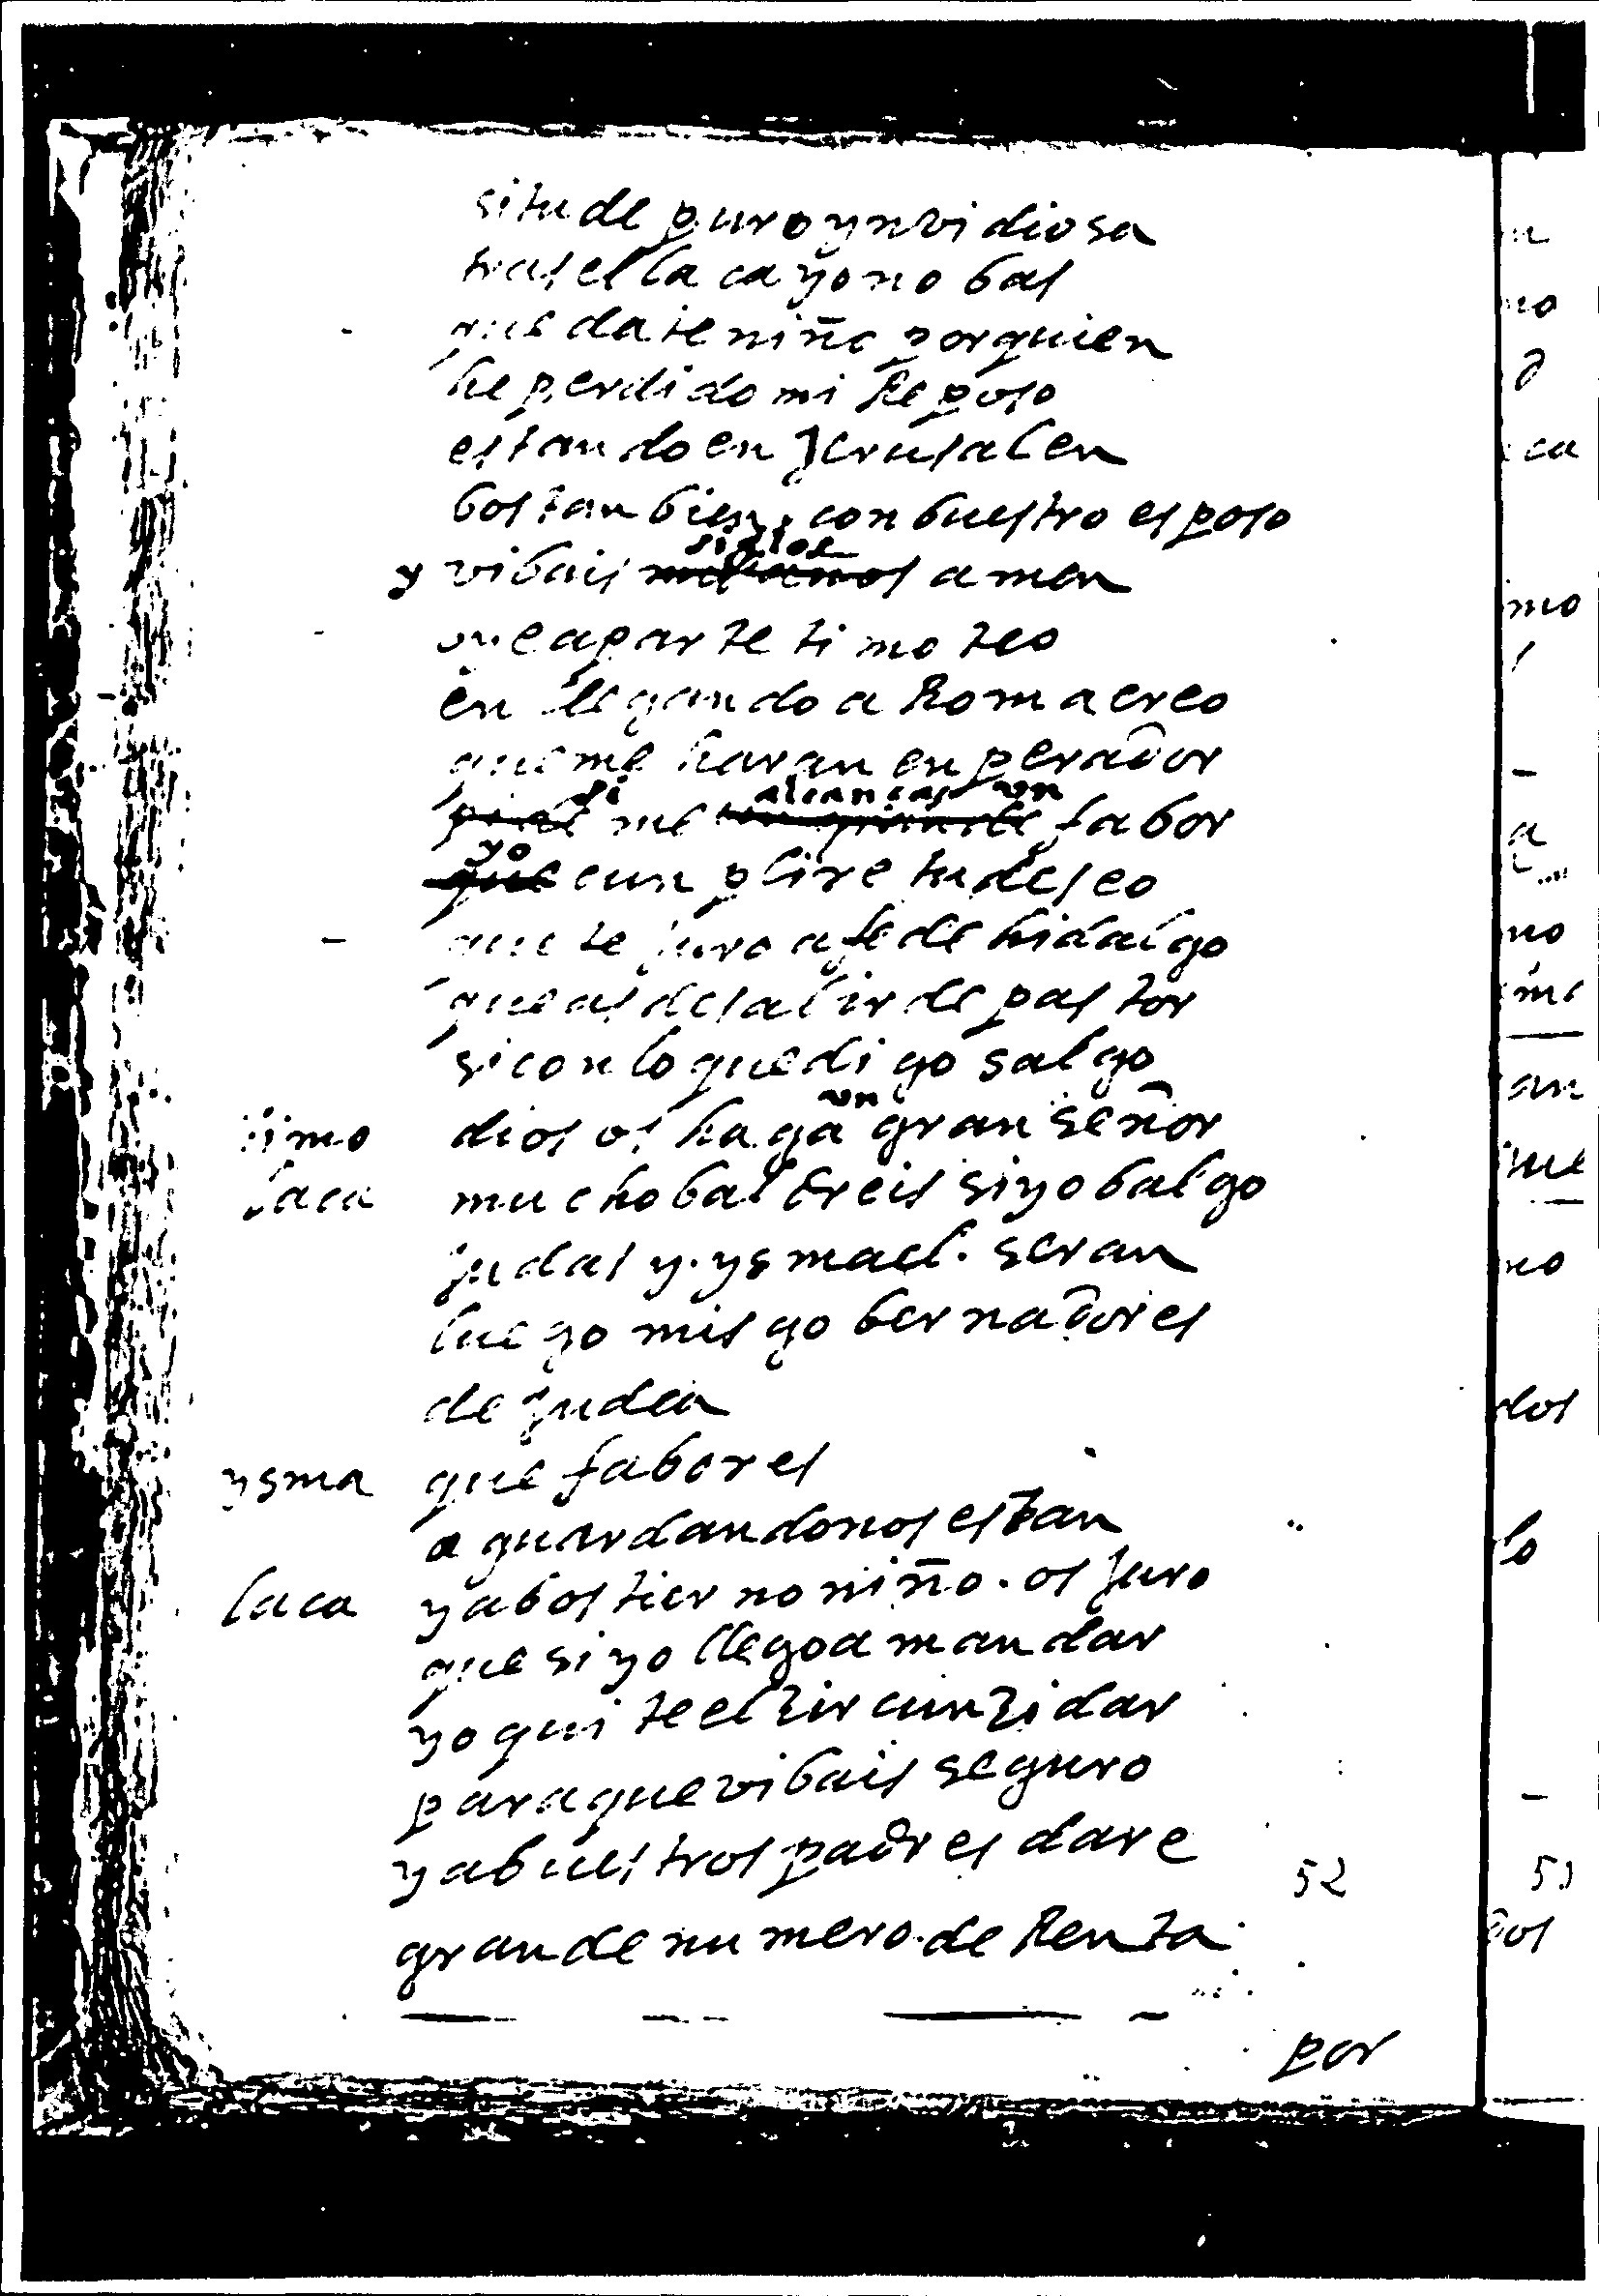 si tu de puro ynvidiosa
tras ella ca yo no bas
quedate niño por quien
he perdido mi Reposo
estando en Jerusalen
bos tanbien con buestro esposo
siglos
y vibais mil años amen
oye aparte timoteo
en llegando a Roma creo
que me haran enperador
si alcancas vn
me fabor
yo
que cunplire tu deseo
que te juro a fe de hidalgo
que as de salir de pastor
si con lo que digo salgo
vn
timo dios os haga gran señor
laca mucho baldreis si yo balgo
judas y. ysmael. seran
luego mis gobernadores
de judea
ysma que fabores
aguardandonos estan
laca y a bos tierno niño. os juro
que si yo llego a mandar
yo quite el zircunzidar
para que vibais seguro
y a buestros padres dare
52
grande numero. de Renta
por